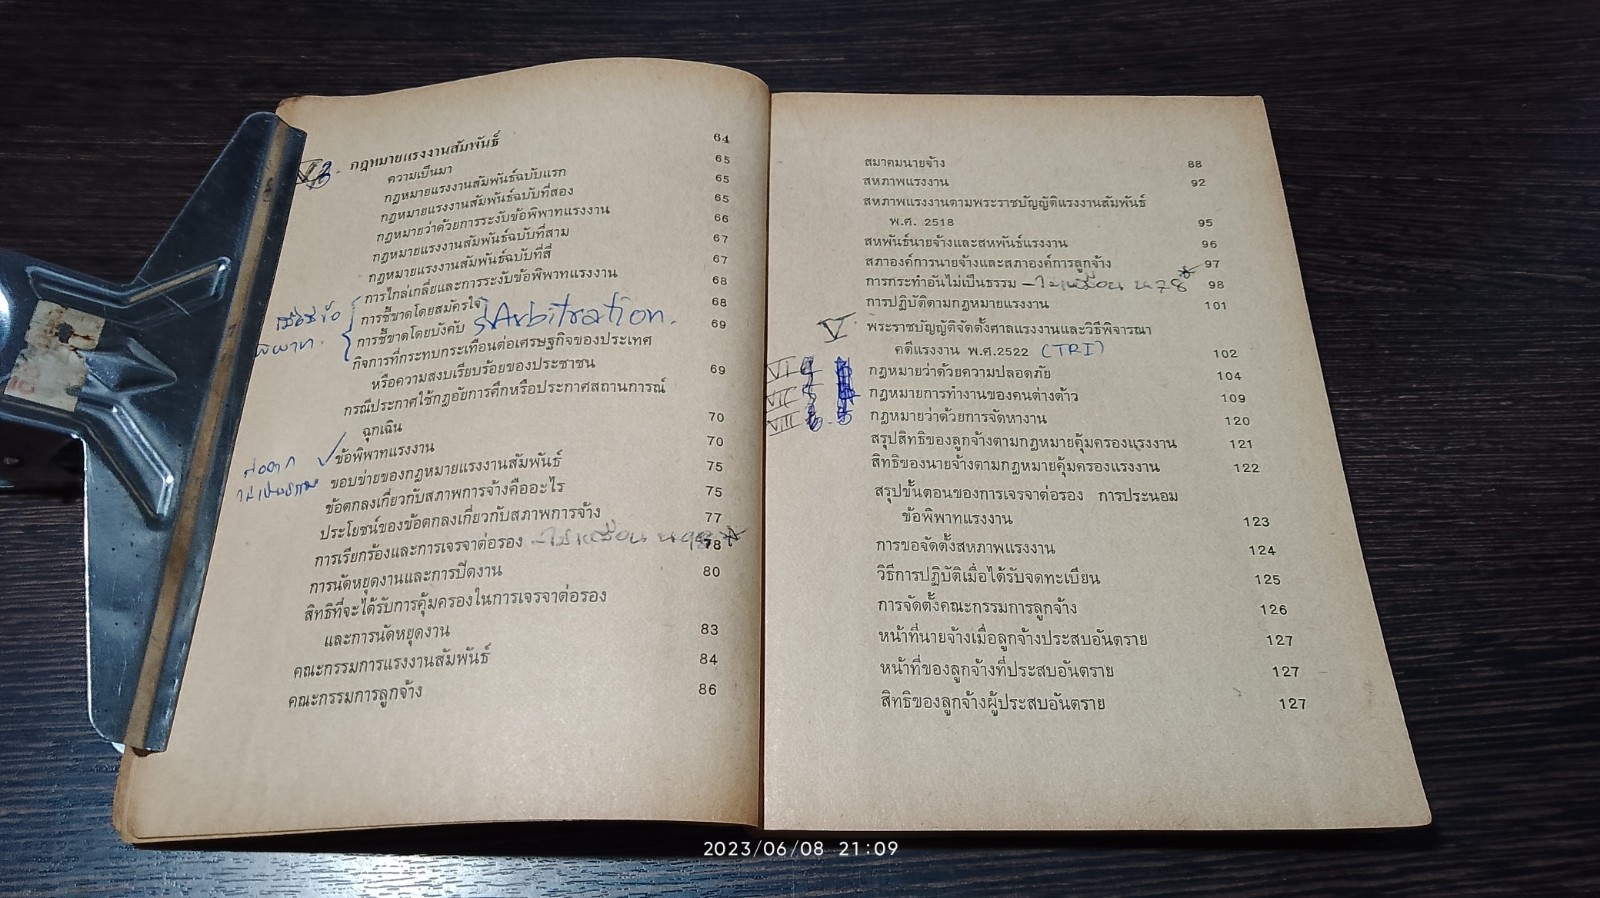 กฎหมายแรงงานสัมพันธ์ 64
ความเป็นมา 65
กฎหมายแรงงานสัมพันธ์ฉบับแรก 65
กฎหมายแรงงานสัมพันธ์ฉบับที่สอง 65
กฎหมายว่าด้วยการระงับข้อพิพาทแรงงาน 66
กฎหมายแรงงานสัมพันธ์ฉบับที่สาม 67
กฎหมายแรงงานสัมพันธ์ฉบับที่สี่ 67
การไกล่เกลี่ยและการระงับข้อพิพาทแรงงาน 68
การชี้ขาดโดยสมัครใจ 68
การชี้ขาดโดยบังคับ Arbitration. 69
กิจการที่กระทบกระเทือนต่อเศรษฐกิจของประเทศ
หรือความสงบเรียบร้อยของประชาชน 69
กรณีประกาศใช้กฎอัยการศึกหรือประกาศสถานการณ์
ฉุกเฉิน 70
ข้อพิพาทแรงงาน 70
ขอบข่ายของกฎหมายแรงงานสัมพันธ์ 75
ข้อตกลงเกี่ยวกับสภาพการจ้างคืออะไร 75
ประโยชน์ของข้อตกลงเกี่ยวกับสภาพการจ้าง 77
การเรียกร้องและการเจรจาต่อรอง 78
การนัดหยุดงานและการปิดงาน 80
สิทธิที่จะได้รับการคุ้มครองในการเจรจาต่อรอง
และการนัดหยุดงาน 83
คณะกรรมการแรงงานสัมพันธ์ 84
คณะกรรมการลูกจ้าง 86
สมาคมนายจ้าง 88
สหภาพแรงงาน 92
สหภาพแรงงานตามพระราชบัญญัติแรงงานสัมพันธ์
พ.ศ. 2518 95
สหพันธ์นายจ้างและสหพันธ์แรงงาน 96
สภาองค์การนายจ้างและสภาองค์การลูกจ้าง 97
การกระทำอันไม่เป็นธรรม 98
การปฏิบัติตามกฎหมายแรงงาน 101
V พระราชบัญญัติจัดตั้งศาลแรงงานและวิธีพิจารณา
คดีแรงงาน พ.ศ.2522 (TRI) 102
VI กฎหมายว่าด้วยความปลอดภัย 104
VII กฎหมายการทำงานของคนต่างด้าว 109
VIII กฎหมายว่าด้วยการจัดหางาน 120
สรุปสิทธิของลูกจ้างตามกฎหมายคุ้มครองแรงงาน 121
สิทธิของนายจ้างตามกฎหมายคุ้มครองแรงงาน 122
สรุปขั้นตอนของการเจรจาต่อรอง การประนอม
ข้อพิพาทแรงงาน 123
การขอจัดตั้งสหภาพแรงงาน 124
วิธีการปฏิบัติเมื่อได้รับจดทะเบียน 125
การจัดตั้งคณะกรรมการลูกจ้าง 126
หน้าที่นายจ้างเมื่อลูกจ้างประสบอันตราย 127
หน้าที่ของลูกจ้างที่ประสบอันตราย 127
สิทธิของลูกจ้างผู้ประสบอันตราย 127
2023/06/08 21:09